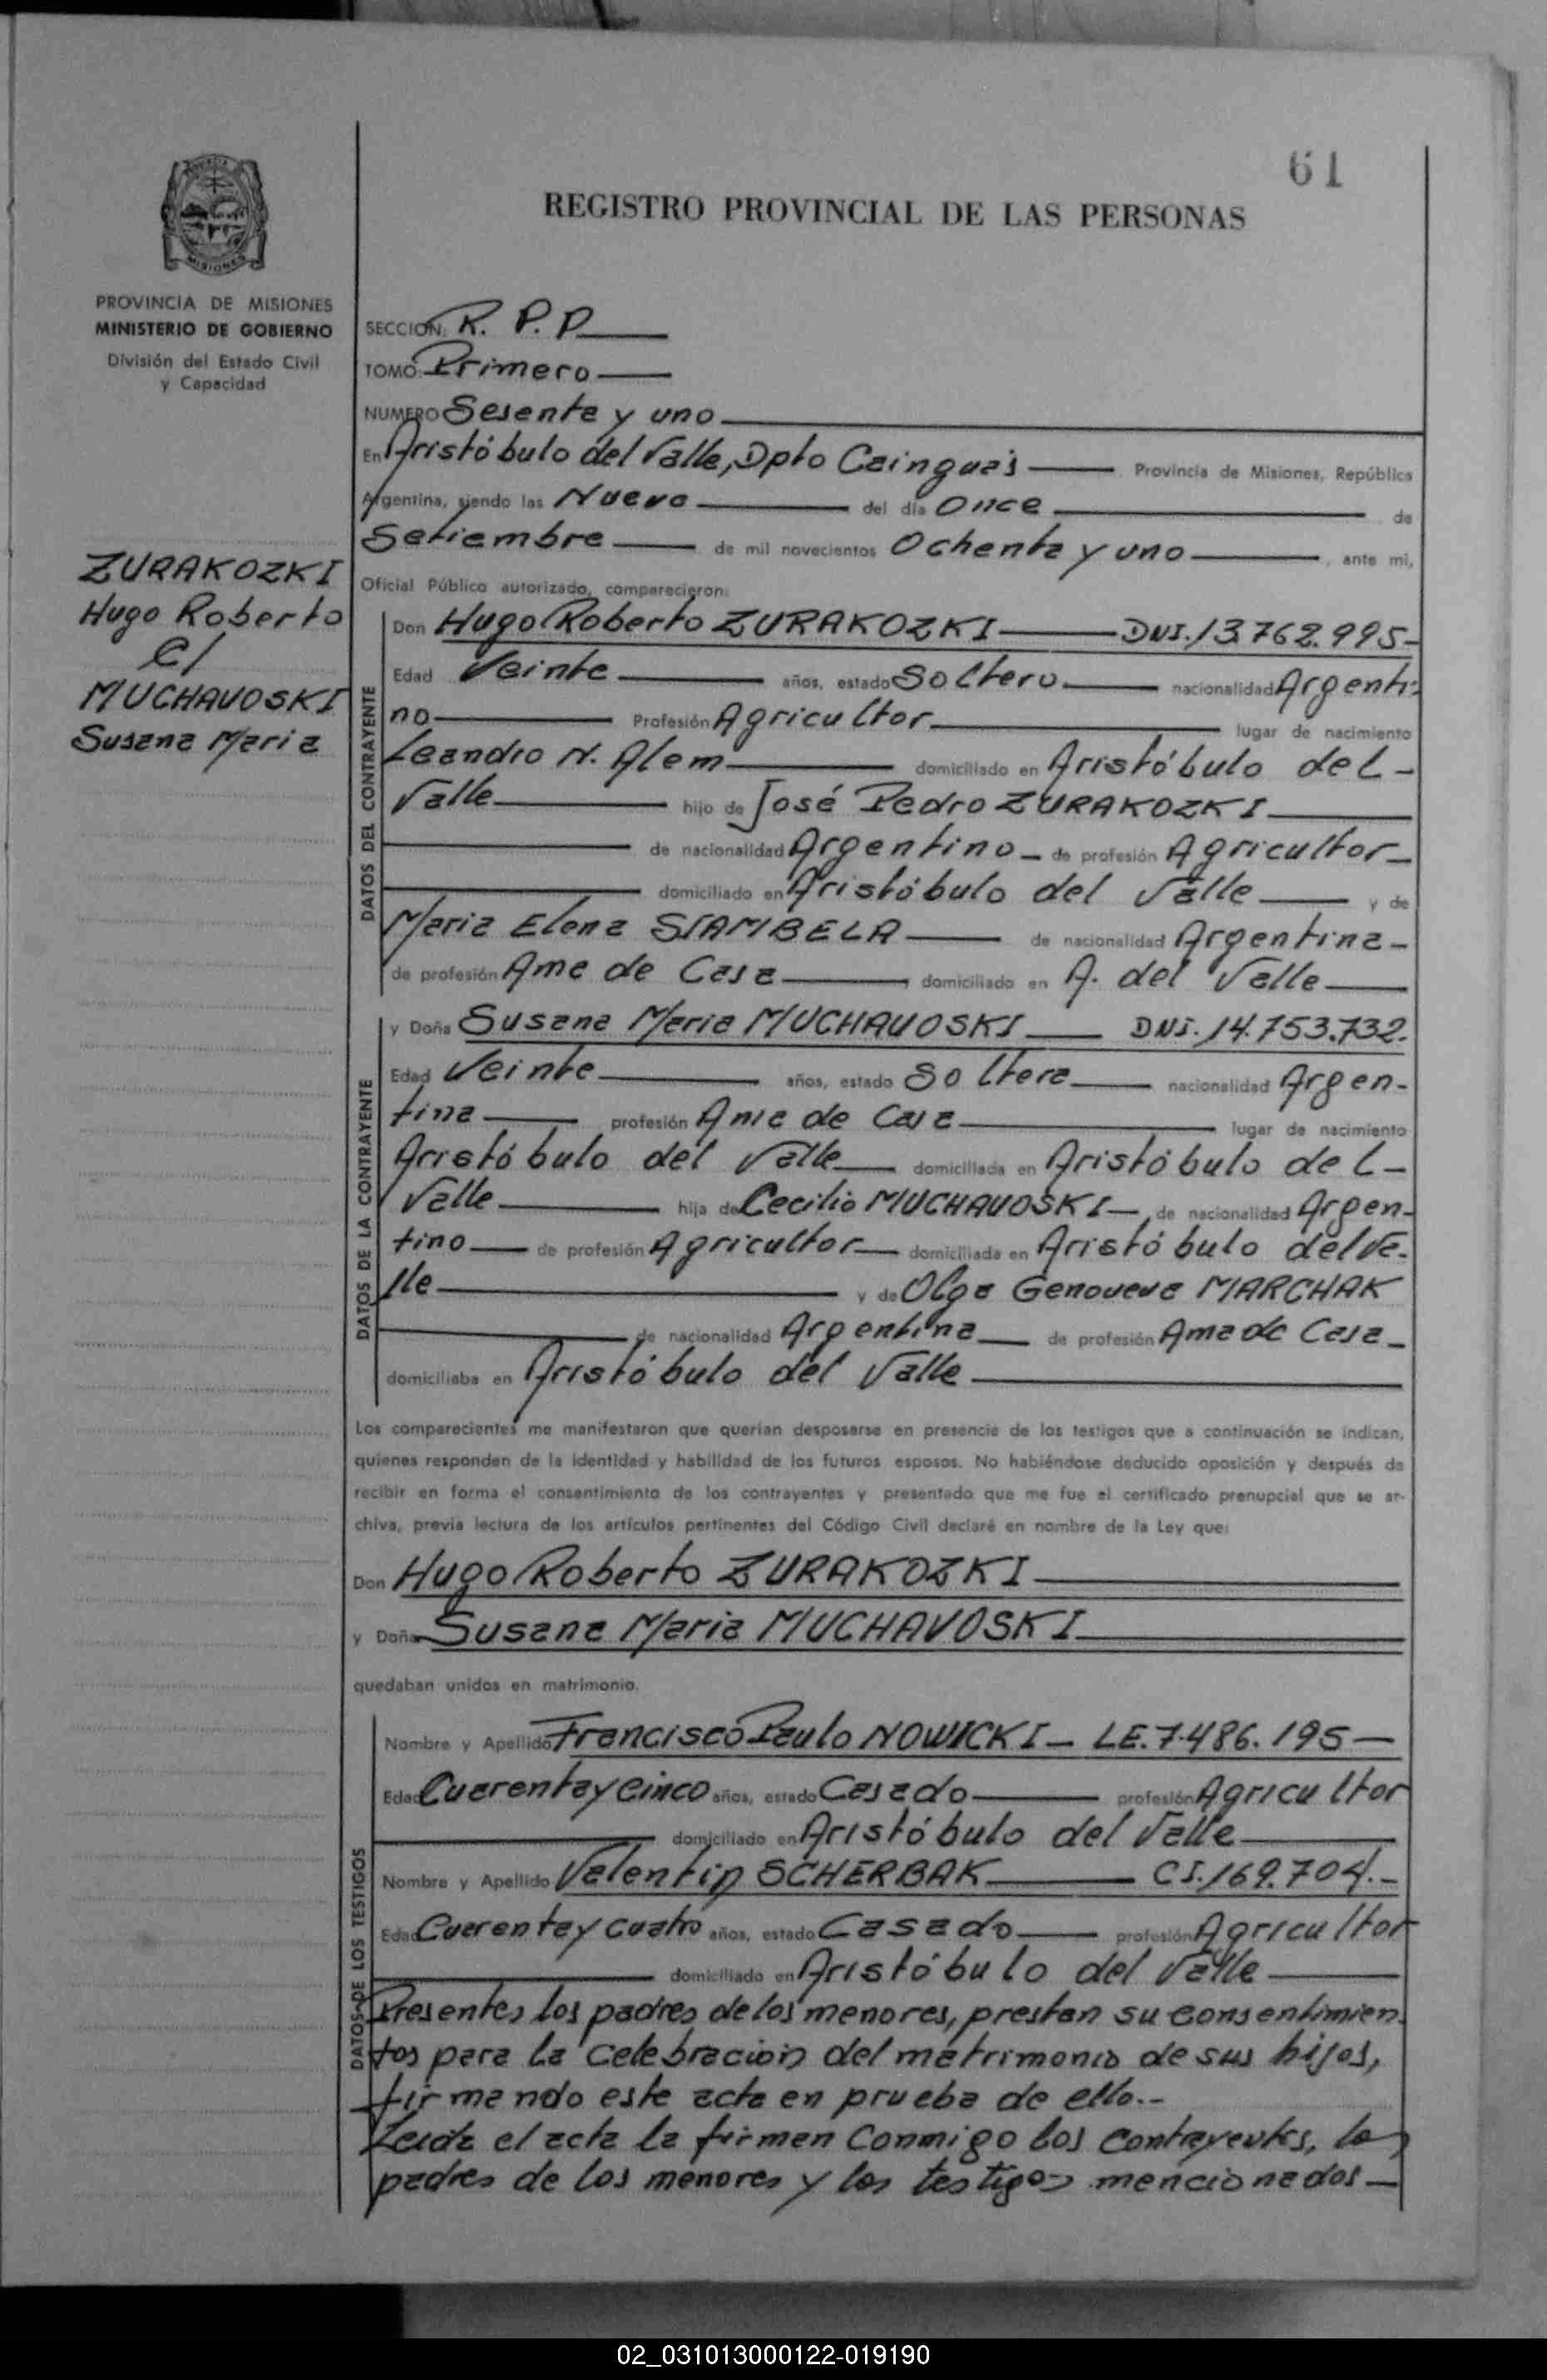 61
REGISTRO PROVINCIAL DE LAS PERSONAS
MISIONES
PROVINCIA DE MISIONES
MINISTERIO DE GOBIERNO
División del Estado Civil
y Capacidad
SECCION: R. P. P
TOMO: Primero
NUMERO Sesenta y uno
En Aristóbulo del Valle, Dpto Cainguás Provincia de Misiones, República
Argentina, siendo las Nueve del día Once de
Setiembre de mil novecientos Ochenta y uno, ante mi,
Oficial Público autorizado, comparecieron:
ZURAKOZKI
Hugo Roberto
C/
MUCHAVOSKI
Susana Maria
DATOS DEL CONTRAYENTE
Don Hugo Roberto ZURAKOZKI DNI. 13.762.995-
Edad Veinte años, estado Soltero nacionalidad Argenti-
no Profesión Agricultor lugar de nacimiento
Leandro N. Alem domiciliado en Aristóbulo del-
Valle hijo de José Pedro ZURAKOZKI
de nacionalidad Argentino- de profesión Agricultor-
domiciliado en Aristóbulo del Valle y de
Maria Elena STAMBELA de nacionalidad Argentina-
de profesión Ama de Casa domiciliado en A. del Valle
DATOS DE LA CONTRAYENTE
y Doña Susana Maria MUCHAVOSKI DNI. 14.753.732.
Edad Veinte años, estado Soltera nacionalidad Argen-
tina profesión Ama de Casa lugar de nacimiento
Aristóbulo del Valle domiciliada en Aristóbulo del-
Valle hija de Cecilio MUCHAVOSKI-, de nacionalidad Argen-
tino de profesión Agricultor domiciliada en Aristóbulo del Va-
lle y de Olga Genoveva MARCHAK
de nacionalidad Argentina de profesión Ama de Casa-
domiciliaba en Aristóbulo del Valle
Los comparecientes me manifestaron que querían desposarse en presencia de los testigos que a continuación se indican,
quienes responden de la identidad y habilidad de los futuros esposos. No habiéndose deducido oposición y después de
recibir en forma el consentimiento de los contrayentes y presentado que me fue el certificado prenupcial que se ar-
chiva, previa lectura de los artículos pertinentes del Código Civil declaré en nombre de la Ley que:
Don Hugo Roberto ZURAKOZKI
y Doña Susana Maria MUCHAVOSKI
quedaban unidos en matrimonio.
DATOS DE LOS TESTIGOS
Nombre y Apellido Francisco Paulo NOWICKI- LE. 7.486.195-
Edad Cuarentay Cinco años, estado Casado profesión Agricultor
domiciliado en Aristóbulo del Valle
Nombre y Apellido Valentin SCHERBAK CI. 169.704.-
Edad Cuarentay cuatro años, estado Casado profesión Agricultor
domiciliado en Aristóbulo del Valle
Presentes los padres de los menores, prestan su consentimien-
tos para la celebracion del matrimonio de sus hijos,
firmando este acta en prueba de ello.-
Leida el acta la firman Conmigo los contrayentes, los
padres de los menores y los testigos mencionados-
02_031013000122-019190